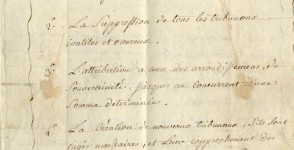 1.° La Suppression de tous les tribunaux
inutiles et onereux.
2.° L'attribution a ceux des arrondissemens, de
Souveraineté jusques au concurrent d'une
Somme determinée.
3.° La Création de nouveaux tribunaux, s'ils sont
jugés nécessaires, et leur rapprochement des